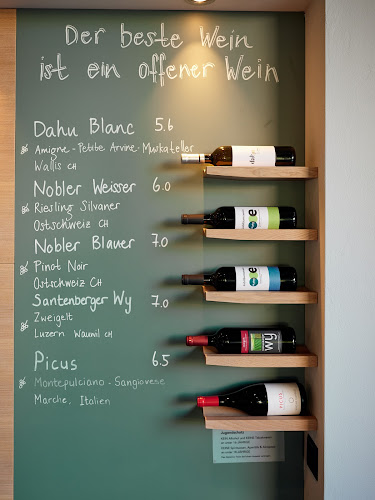 Der beste Wein
ist ein offener Wein
Dahu Blanc 5.6
Amigne - Petite Arvine - Muskateller
Wallis CH
Nobler Weisser 6.0
Riesling Silvaner
Ostschweiz CH
Nobler Blauer 7.0
Pinot Noir
Ostschweiz CH
Santenberger Wy 7.0
Zweigelt
Luzern Wauwil CH
Picus 6.5
Montepulciano - Sangiovese
Marche, Italien
dahu
e
e
wy
PICUS
Jugendschutz